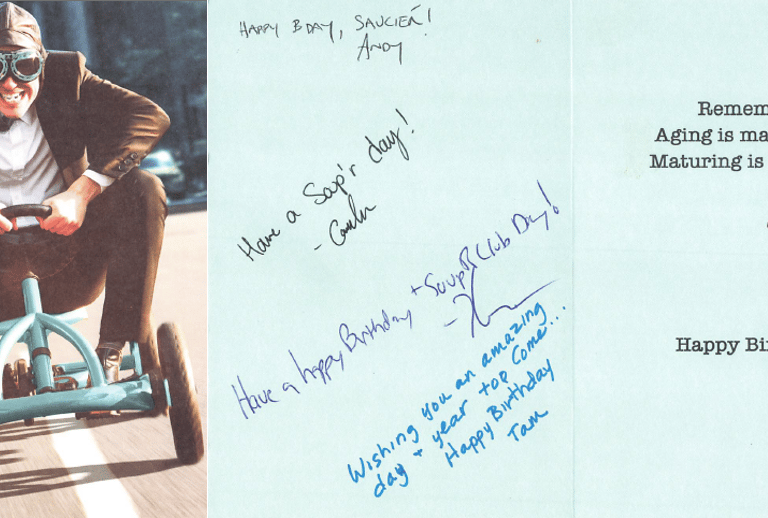 HAPPY BDAY, SAUCIER!
ANDY
Have a Soup'r day!
-
Have a happy Birthday + Soup Club Day!
-
Wishing you an amazing
day + year to come...
Happy Birthday
Tam
Remem
Aging is ma
Maturing is
Happy Bir